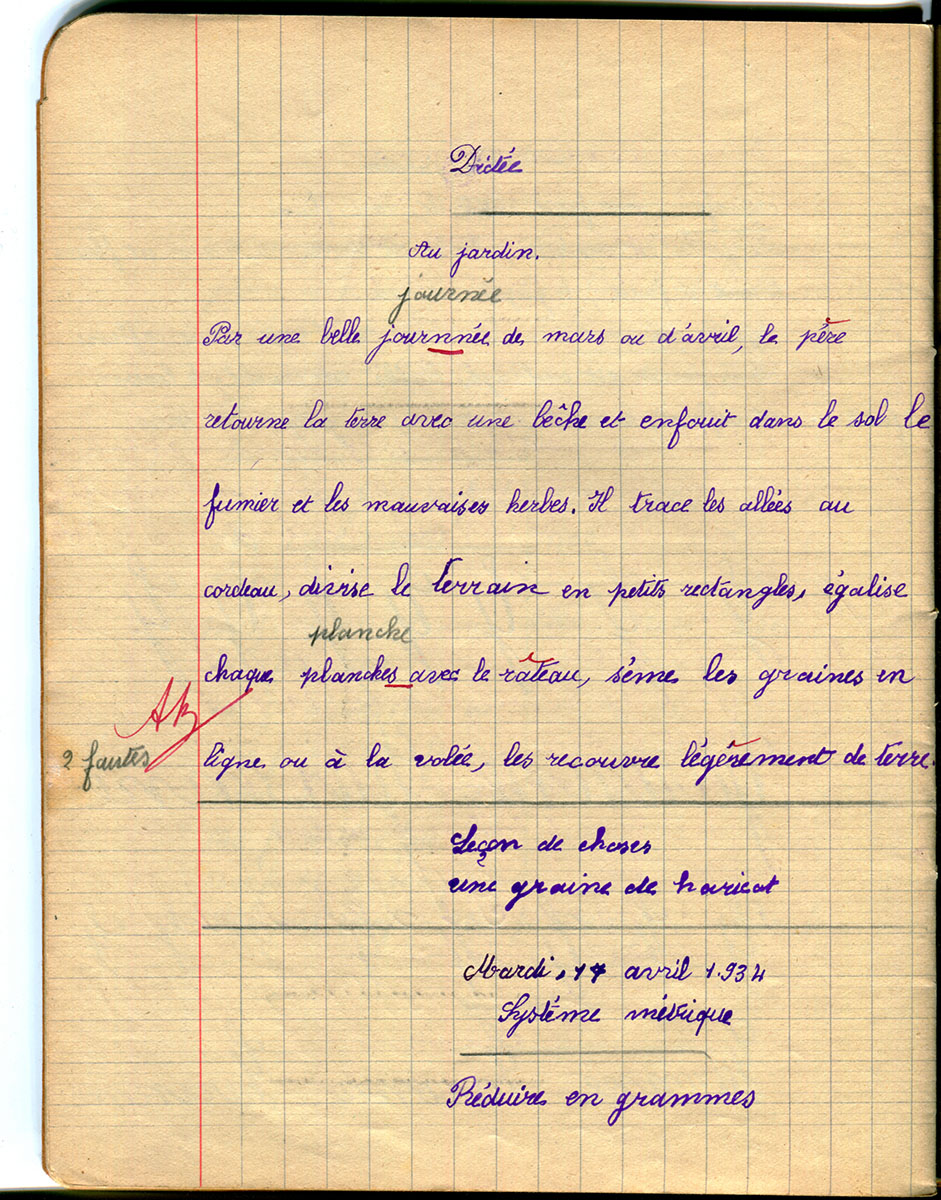 Dictée
Au jardin.
journée
Par une belle journnée de mars ou d'avril, le père
retourne la terre avec une bêche et enfouit dans le sol le
fumier et les mauvaises herbes. Il trace les allées au
cordeau, divise le terrain en petits rectangles, égalise
planche
chaque planches avec le râteau, sème les graines en
2 fautes
ligne ou à la volée, les recouvre légèrement de terre.
Leçon de choses
une graine de haricot
Mardi, 17 avril 1.934
Système métrique
Réduire en grammes